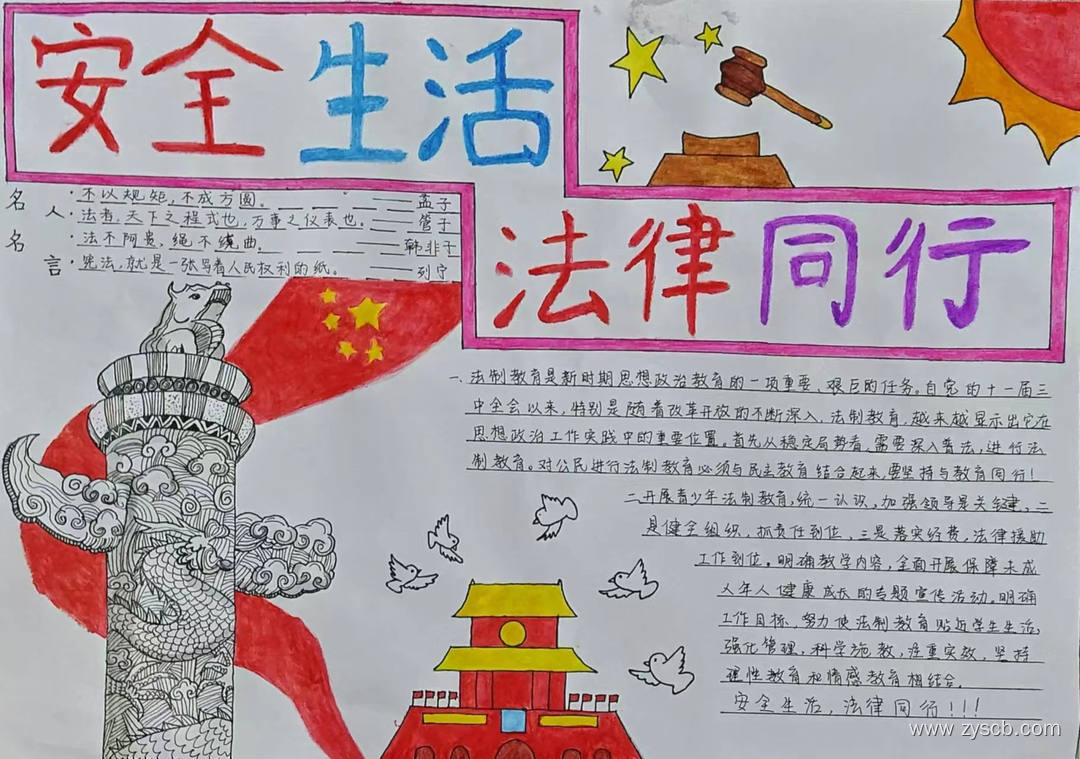 安全生活
法律同行
名人名言
·不以规矩,不成方圆。——孟子
·法者,天下之程式也,万事之仪表也。——管子
·法不阿贵,绳不绕曲。——韩非子
·宪法,就是一张写着人民权利的纸。——列宁
一、法制教育是新时期思想政治教育的一项重要、艰巨的任务。自党的十一届三
中全会以来,特别是随着改革开放的不断深入,法制教育,越来越显示出它在
思想政治工作实践中的重要位置。首先从稳定局势看,需要深入普法,进行法
制教育。对公民进行法制教育必须与民主教育结合起来,要坚持与教育同行!
二开展青少年法制教育,统一认识,加强领导是关键,二
是健全组织,抓责任到位,三是落实经费,法律援助
工作到位。明确教学内容,全面开展保障未成
人年人健康成长的专题宣传活动。明确
工作目标,努力使法制教育贴近学生生活,
强化管理,科学施教,注重实效,坚持
理性教育和情感教育相结合。
安全生活,法律同行!!!
www.zyscb.com